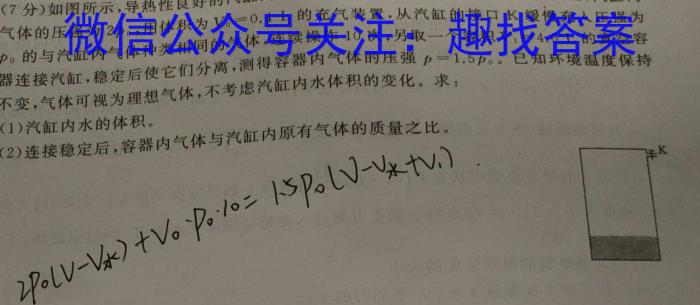 (7分)如图所示,导热性良好的汽
气体的压 用体积为V =0. 的充气装置,从汽缸的接口K缓慢 压强为
微信公众号关注：趣找答案
p₀的与汽缸内 体种类相同的气体,连续操作10次,另取一
器连接汽缸,稳定后使它们分离,测得容器内气体的压强 p=1.5p₀。已知环境温度保持
不变,气体可视为理想气体,不考虑汽缸内水体积的变化。求:
(1)汽缸内水的体积。
(2)连接稳定后,容器内气体与汽缸内原有气体的质量之比。
K
2p₀(V-V水)+V₀·p₀·10=1.5p₀(V-V水+V₁)